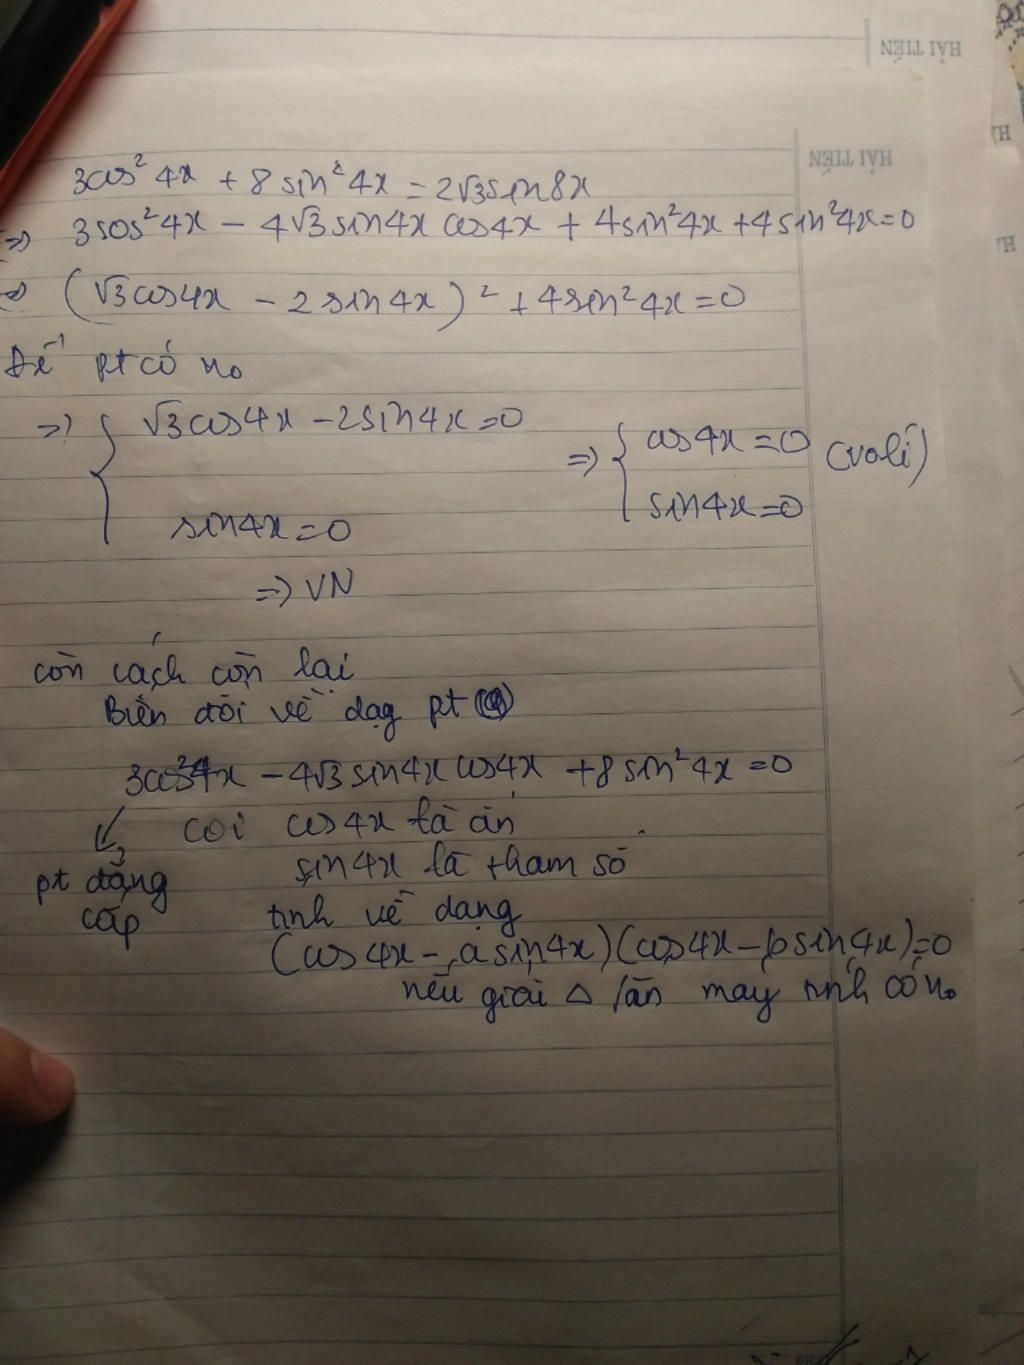 HẢI TIẾN
HẢI TIẾN
3cos²4x + 8sin²4x = 2√3sin8x
=> 3sos²4x - 4√3sin4x cos4x + 4sin²4x + 4sin²4x = 0
=> (√3cos4x - 2sin4x)² + 4sin²4x = 0
Để pt có no
=> { √3cos4x - 2sin4x = 0 => { cos4x = 0 (voli)
sin4x = 0 sin4x = 0
=> VN
còn cách còn lại
Biến đổi về dạg pt
3cos²4x - 4√3sin4x cos4x + 8sin²4x = 0
coi cos4x là ẩn
sin4x là tham số
pt đẳng cấp
tính về dạng
(cos4x - a sin4x)(cos4x - b sin4x) = 0
nếu giải Δ /ấn máy tính có no